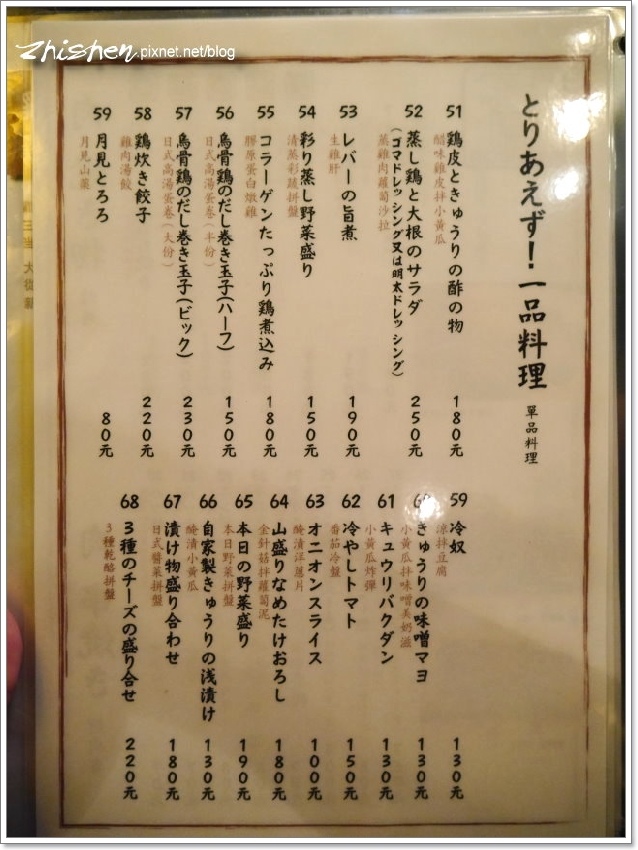 zhishen.pixnet.net/blog
とりあえず!一品料理
單品料理
51 鶏皮ときゅうりの酢の物 180元
醋味雞皮拌小黃瓜
52 蒸し鶏と大根のサラダ 250元
(ゴマドレッシング又は明太ドレッシング)
蒸雞肉蘿蔔沙拉
53 レバーの旨煮 190元
生雞肝
54 彩り蒸し野菜盛り 150元
清蒸彩蔬拼盤
55 コラーゲンたっぷり鶏煮込み 180元
膠原蛋白燉雞
56 烏骨鶏のだし巻き玉子(ハーフ) 150元
日式高湯蛋卷(半份)
57 烏骨鶏のだし巻き玉子(ビック) 230元
日式高湯蛋卷(大份)
58 鶏炊き餃子 220元
雞肉湯餃
59 月見とろろ 80元
月見山藥
59 冷奴 130元
涼拌豆腐
60 きゅうりの味噌マヨ 130元
小黃瓜拌味噌美奶滋
61 キュウリバクダン 130元
小黃瓜炸彈
62 冷やしトマト 150元
番茄冷盤
63 オニオンスライス 100元
醃漬洋蔥片
64 山盛りなめたけおろし 180元
金針菇拌蘿蔔泥
65 本日の野菜盛り 190元
本日野菜拼盤
66 自家製きゅうりの浅漬け 130元
醃漬小黃瓜
67 漬け物盛り合わせ 180元
日式醬菜拼盤
68 3種のチーズの盛り合せ 220元
3種乾酪拼盤